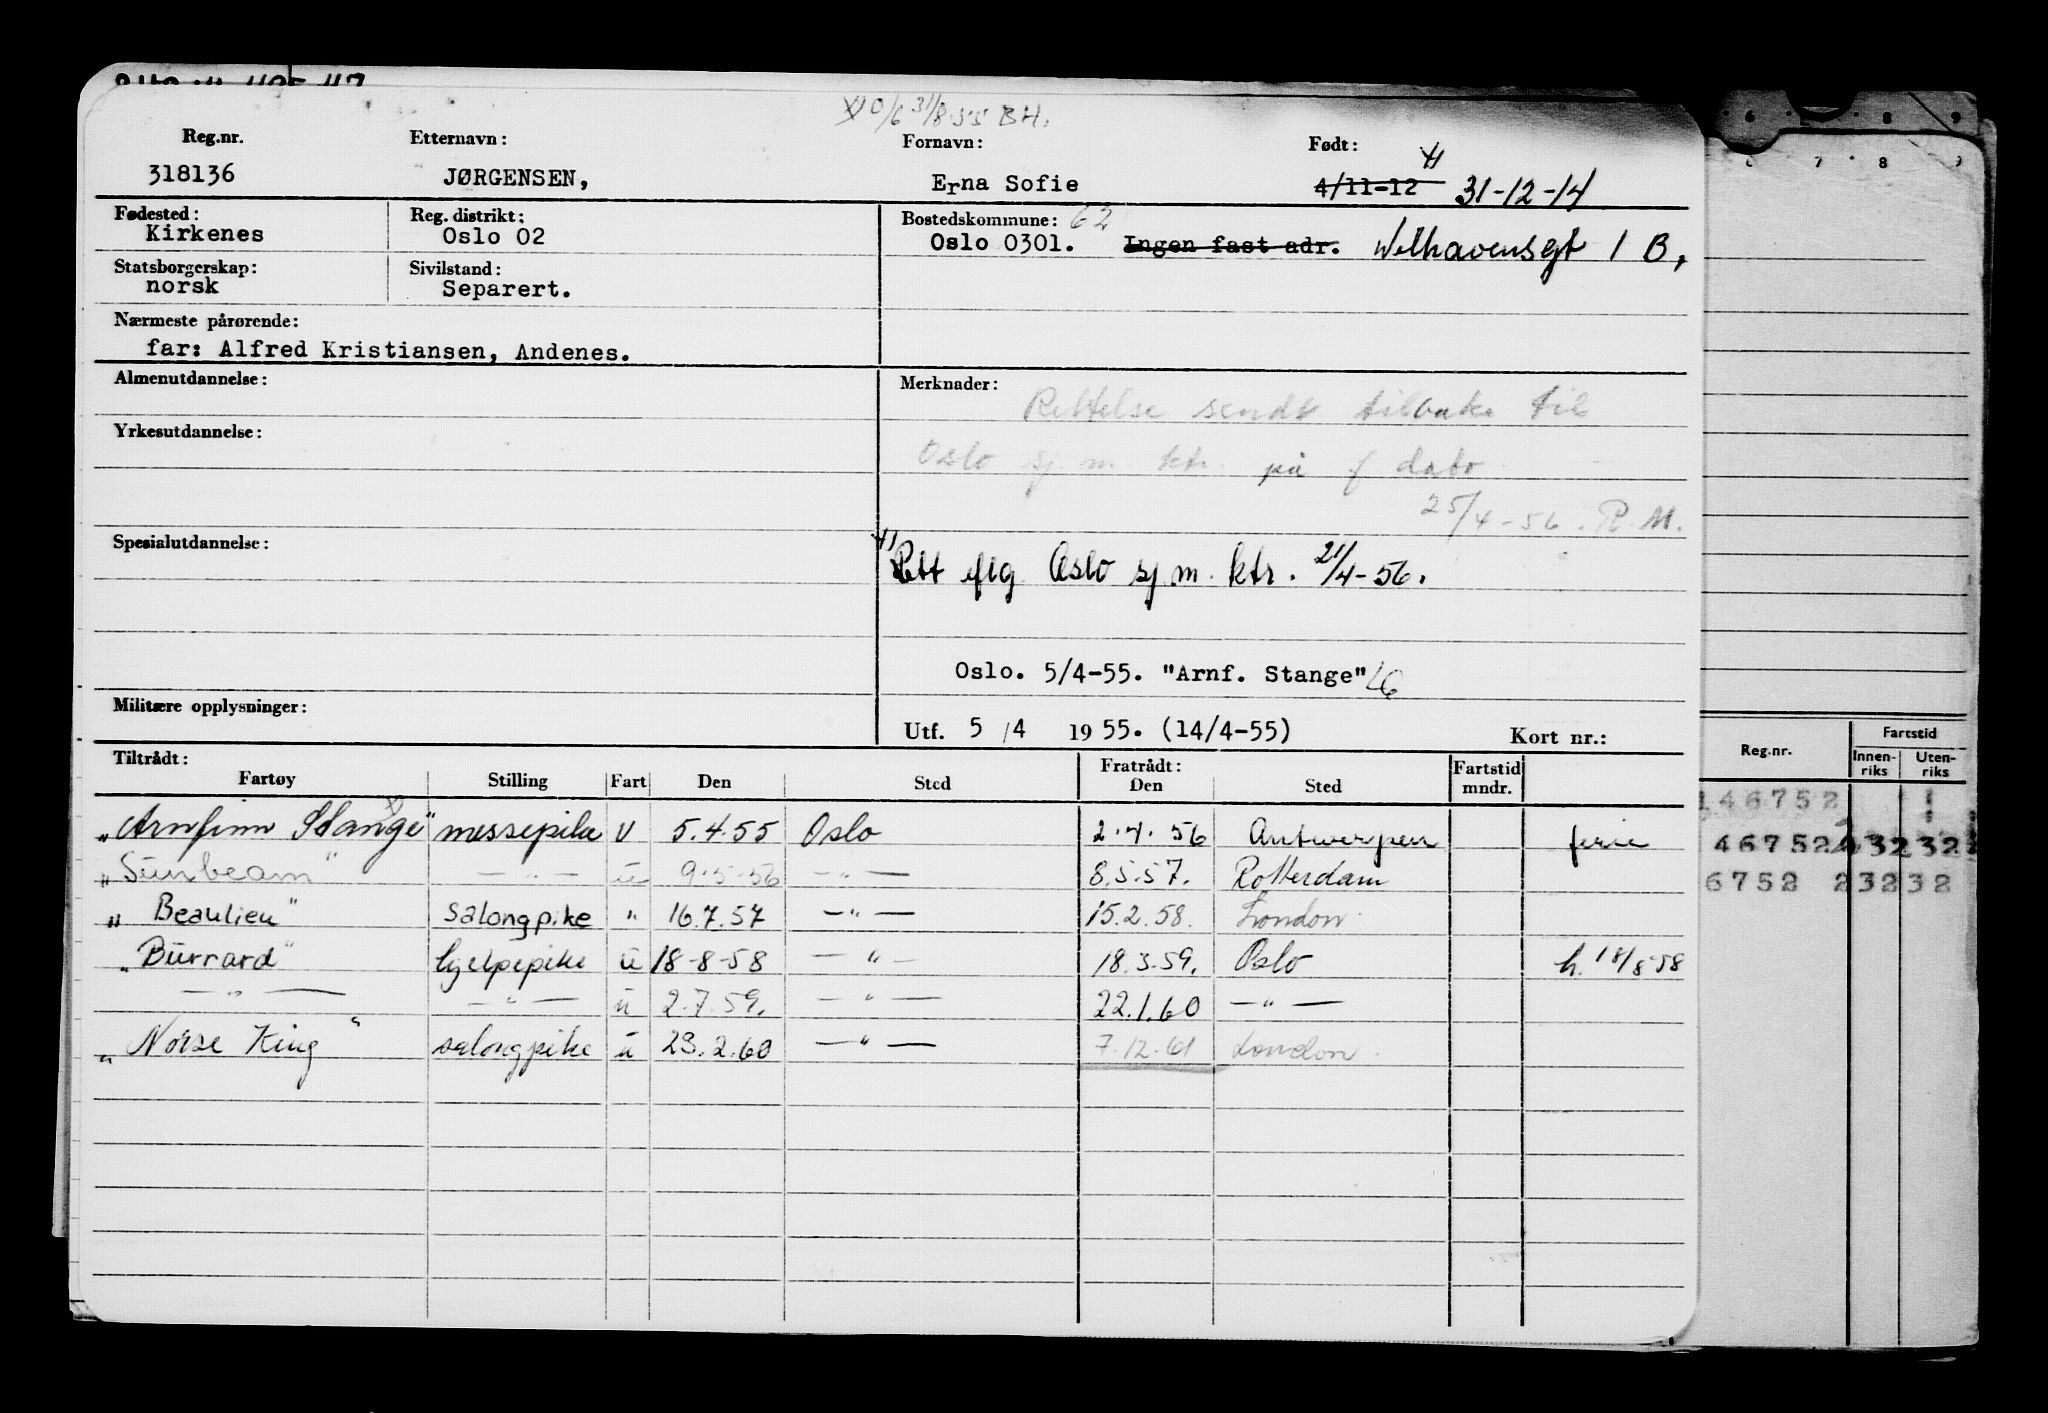 x) 0/6 31/8.55 BH.
Reg.nr. Etternavn: Fornavn: Født:
318136 JØRGENSEN, Erna Sofie 4/11-12 x) 31-12-14
Fødested: Reg. distrikt: Bostedskommune: 62
Kirkenes Oslo 02 Oslo 0301. Ingen fast adr. Welhavensgt 1 B,
Statsborgerskap: Sivilstand:
norsk Separert.
Nærmeste pårørende:
far: Alfred Kristiansen, Andenes.
Almenutdannelse: Merknader:
Rettelse sendt tilbake til
Yrkesutdannelse:
Oslo sj.m. ktr. på f dato
25/4-56. R.M.
Spesialutdannelse:
x) Rett eflg Oslo sj.m. ktr. 21/4-56.
Oslo. 5/4-55. "Arnf. Stange"
Militære opplysninger:
Utf. 5/4 1955. (14/4-55) Kort nr.:
Tiltrådt: Fratrådt:
Fartøy Stilling Fart Den Sted Den Sted Fartstid mndr.
"Arnfinn Stange" messepike U 5.4.55 Oslo 2.4.56 Antwerpen ferie
"Sunbeam" —"— u 9.5.56 —"— 8.5.57. Rotterdam
"Beaulieu" salongpike " 16.7.57 —"— 15.2.58. London.
"Burrard" hjelpepike u 18-8-58 —"— 18.3.59. Oslo h. 18/8 58
—"— —"— u 2.7.59. —"— 22.1.60 —"—
"Norse King" salongpike u 23.2.60 —"— 7.12.61 London.
6 8 9
7 8 9
Reg.nr. Fartstid
Innen-riks Uten-riks
146752
46752 232 232
6752 23232